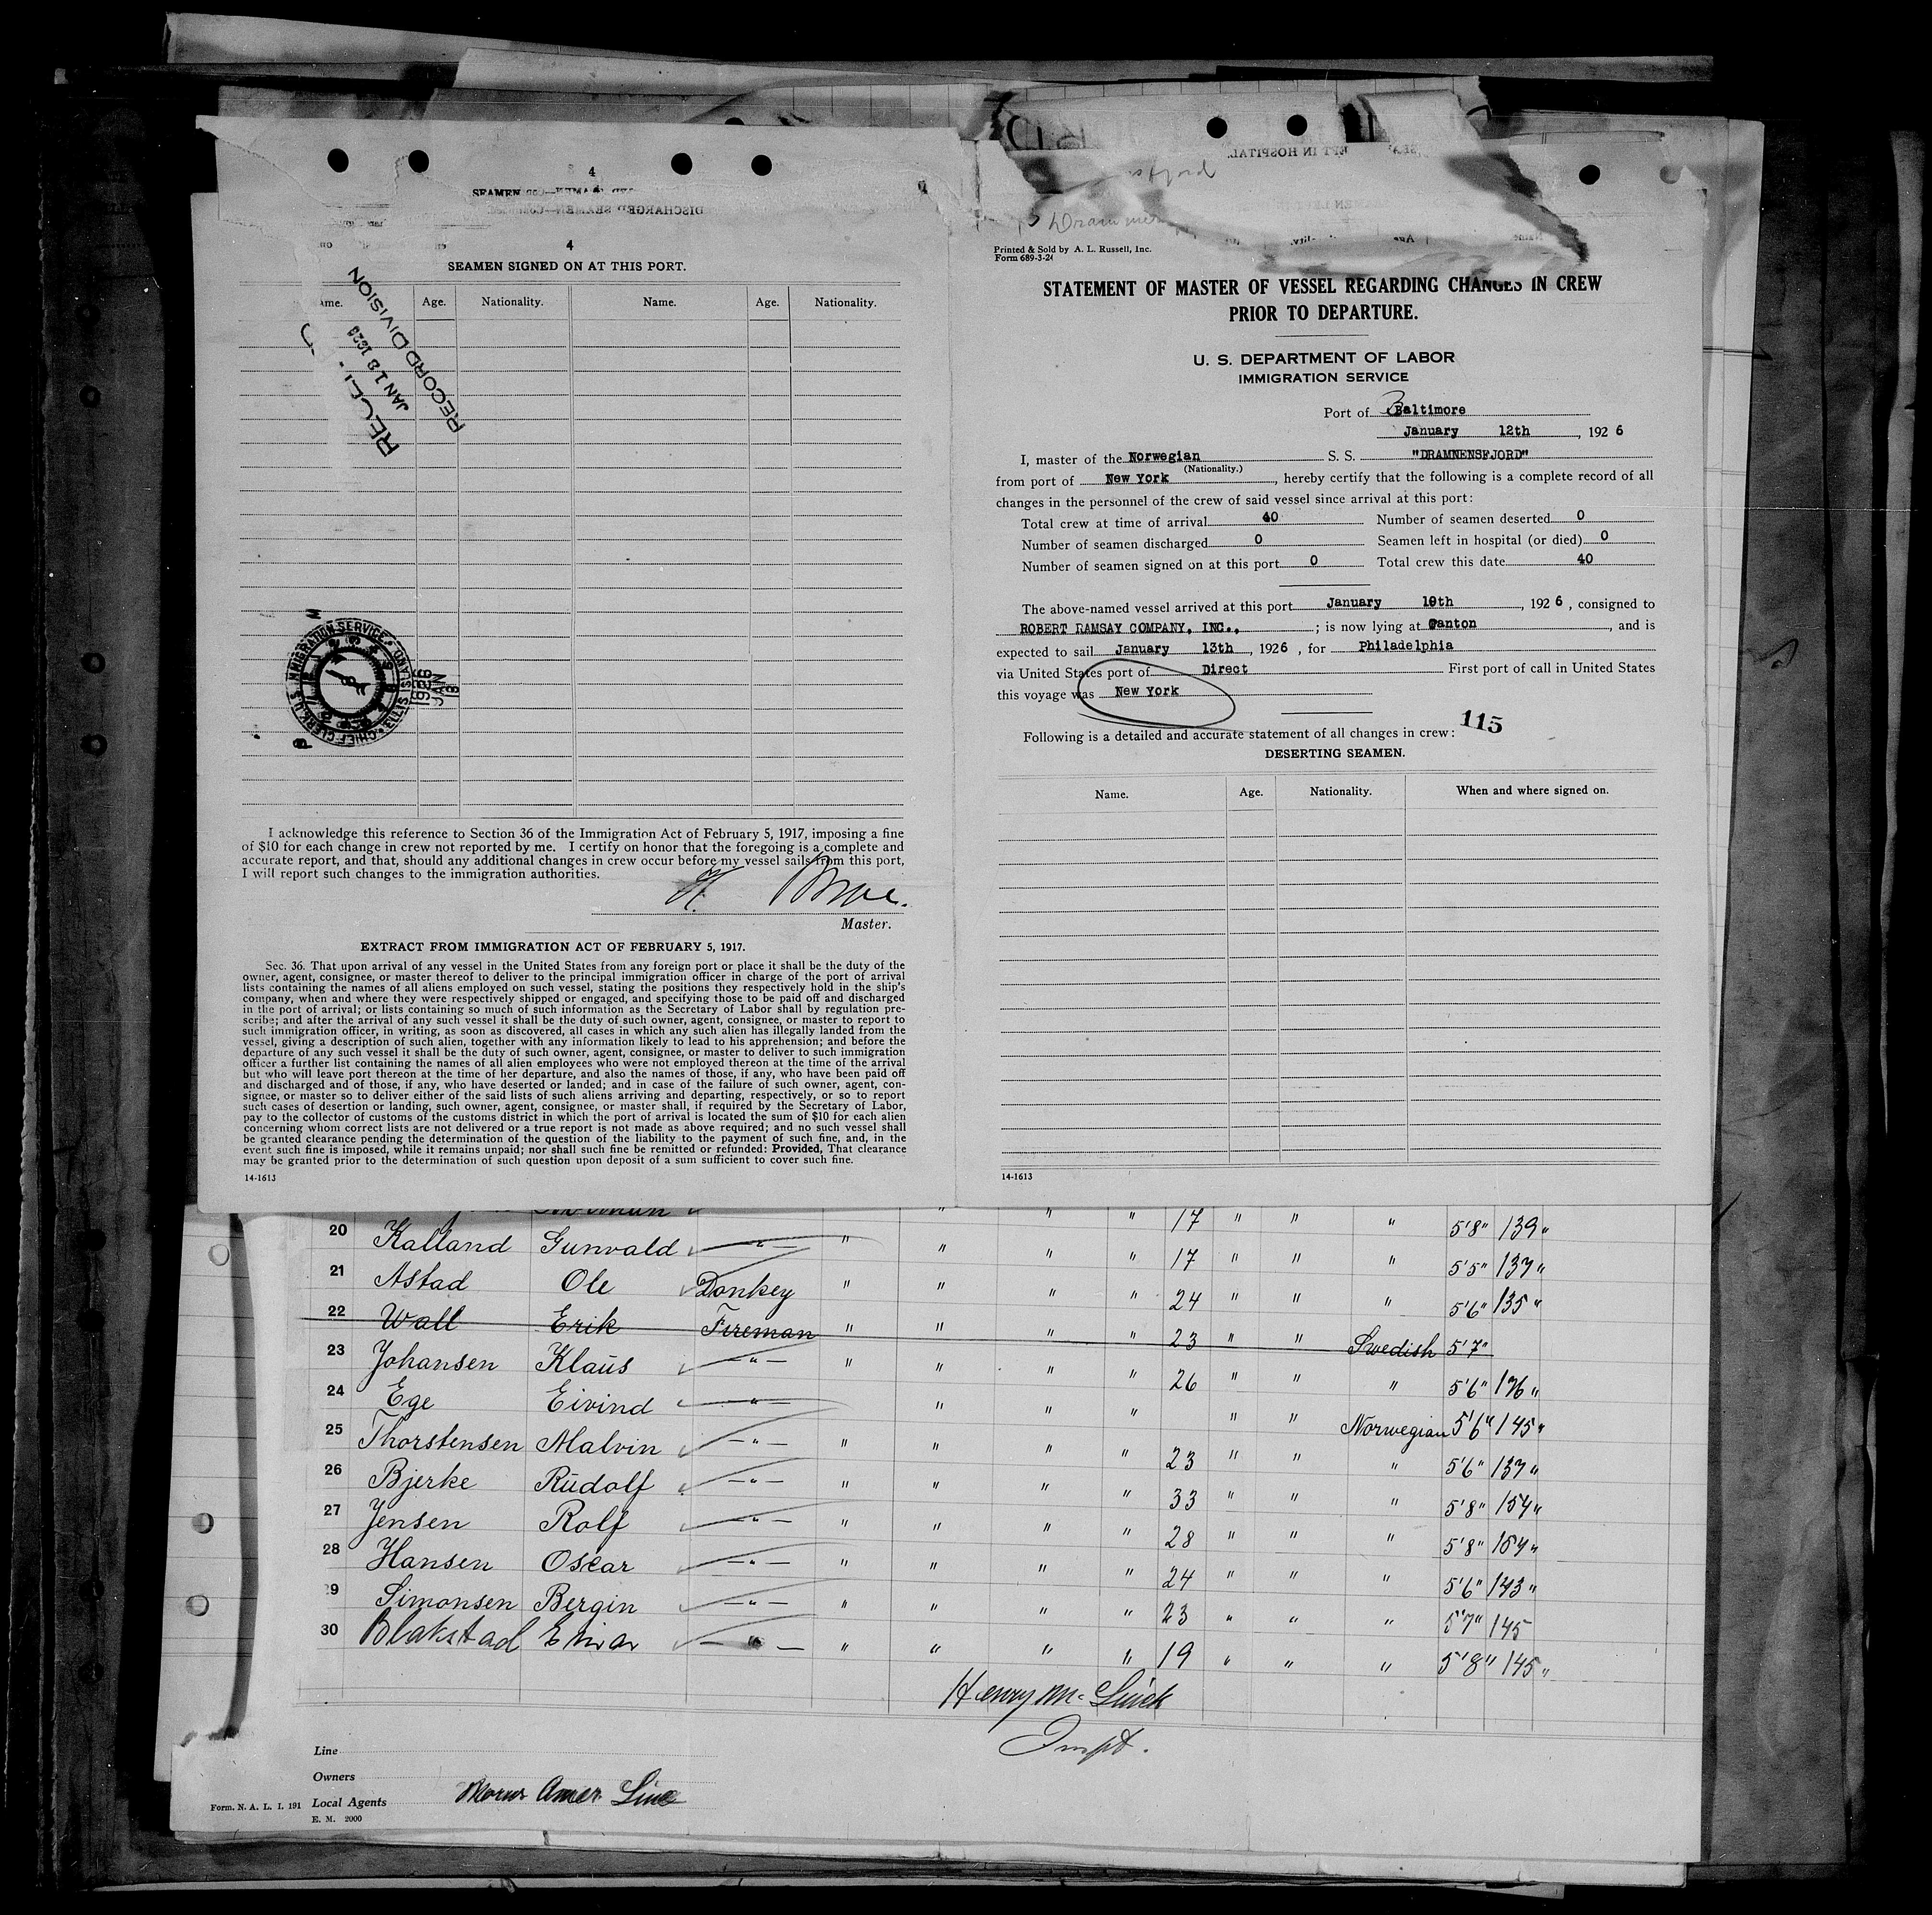 4
SEAMEN SIGNED ON AT THIS PORT.
Age. Nationality. Name. Age. Nationality.
JAN 18 1926
RECORD DIVISION
CHIEF CLERK, U.S. IMMIGRATION SERVICE ELLIS ISLAND
1926 JAN 18
I acknowledge this reference to Section 36 of the Immigration Act of February 5, 1917, imposing a fine
of $10 for each change in crew not reported by me. I certify on honor that the foregoing is a complete and
accurate report, and that, should any additional changes in crew occur before my vessel sails from this port,
I will report such changes to the immigration authorities.
Master.
EXTRACT FROM IMMIGRATION ACT OF FEBRUARY 5, 1917.
Sec. 36. That upon arrival of any vessel in the United States from any foreign port or place it shall be the duty of the
owner, agent, consignee, or master thereof to deliver to the principal immigration officer in charge of the port of arrival
lists containing the names of all aliens employed on such vessel, stating the positions they respectively hold in the ship's
company, when and where they were respectively shipped or engaged, and specifying those to be paid off and discharged
in the port of arrival; or lists containing so much of such information as the Secretary of Labor shall by regulation pre-
scribe; and after the arrival of any such vessel it shall be the duty of such owner, agent, consignee, or master to report to
such immigration officer, in writing, as soon as discovered, all cases in which any such alien has illegally landed from the
vessel, giving a description of such alien, together with any information likely to lead to his apprehension; and before the
departure of any such vessel it shall be the duty of such owner, agent, consignee, or master to deliver to such immigration
officer a further list containing the names of all alien employees who were not employed thereon at the time of the arrival
but who will leave port thereon at the time of her departure, and also the names of those, if any, who have been paid off
and discharged and of those, if any, who have deserted or landed; and in case of the failure of such owner, agent, con-
signee, or master so to deliver either of the said lists of such aliens arriving and departing, respectively, or so to report
such cases of desertion or landing, such owner, agent, consignee, or master shall, if required by the Secretary of Labor,
pay to the collector of customs of the customs district in which the port of arrival is located the sum of $10 for each alien
concerning whom correct lists are not delivered or a true report is not made as above required; and no such vessel shall
be granted clearance pending the determination of the question of the liability to the payment of such fine, and, in the
event such fine is imposed, while it remains unpaid; nor shall such fine be remitted or refunded: Provided, That clearance
may be granted prior to the determination of such question upon deposit of a sum sufficient to cover such fine.
14-1613
Printed & Sold by A. L. Russell, Inc.
Form 689-3-24
STATEMENT OF MASTER OF VESSEL REGARDING CHANGES IN CREW
PRIOR TO DEPARTURE.
U. S. DEPARTMENT OF LABOR
IMMIGRATION SERVICE
Port of Baltimore
January 12th, 1926
I, master of the Norwegian S. S. "DRAMNENSFJORD"
(Nationality.)
from port of New York, hereby certify that the following is a complete record of all
changes in the personnel of the crew of said vessel since arrival at this port:
Total crew at time of arrival 40 Number of seamen deserted 0
Number of seamen discharged 0 Seamen left in hospital (or died) 0
Number of seamen signed on at this port 0 Total crew this date 40
The above-named vessel arrived at this port January 10th, 1926, consigned to
ROBERT RAMSAY COMPANY, INC., ; is now lying at Canton, and is
expected to sail January 13th, 1926, for Philadelphia
via United States port of Direct First port of call in United States
this voyage was New York
115
Following is a detailed and accurate statement of all changes in crew:
DESERTING SEAMEN.
Name. Age. Nationality. When and where signed on.
14-1613
" " " 17 " " " 5'8" 139 "
20 Kalland Gunvald — " — " " " " 17 " " " 5'5" 137 "
21 Astad Ole Donkey " " " " 24 " " " 5'6" 135 "
22 Wall Erik Fireman " " " " 23 " " Swedish 5'7"
23 Johansen Klaus — " — " " " " 26 " " " 5'6" 176 "
24 Ege Eivind — " — " " " " " Norwegian 5'6" 145 "
25 Thorstensen Malvin — " — " " " " 23 " " " 5'6" 137 "
26 Bjerke Rudolf — " — " " " " 33 " " " 5'8" 154 "
27 Jensen Rolf — " — " " " " 28 " " " 5'8" 154 "
28 Hansen Oscar — " — " " " " 24 " " " 5'6" 143 "
29 Simonsen Bergin — " — " " " " 23 " " " 5'7" 145
30 Blakstad Einar — " — " " " " 19 " " " 5'8" 145 "
Henry Mc
Inspt.
Line
Owners
Form. N. A. L. I. 191 Local Agents Norw Amer Line
E. M. 2000